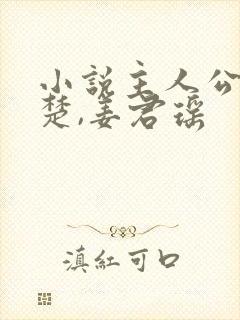 小说主人公
楚,姜君瑶
滇红可口